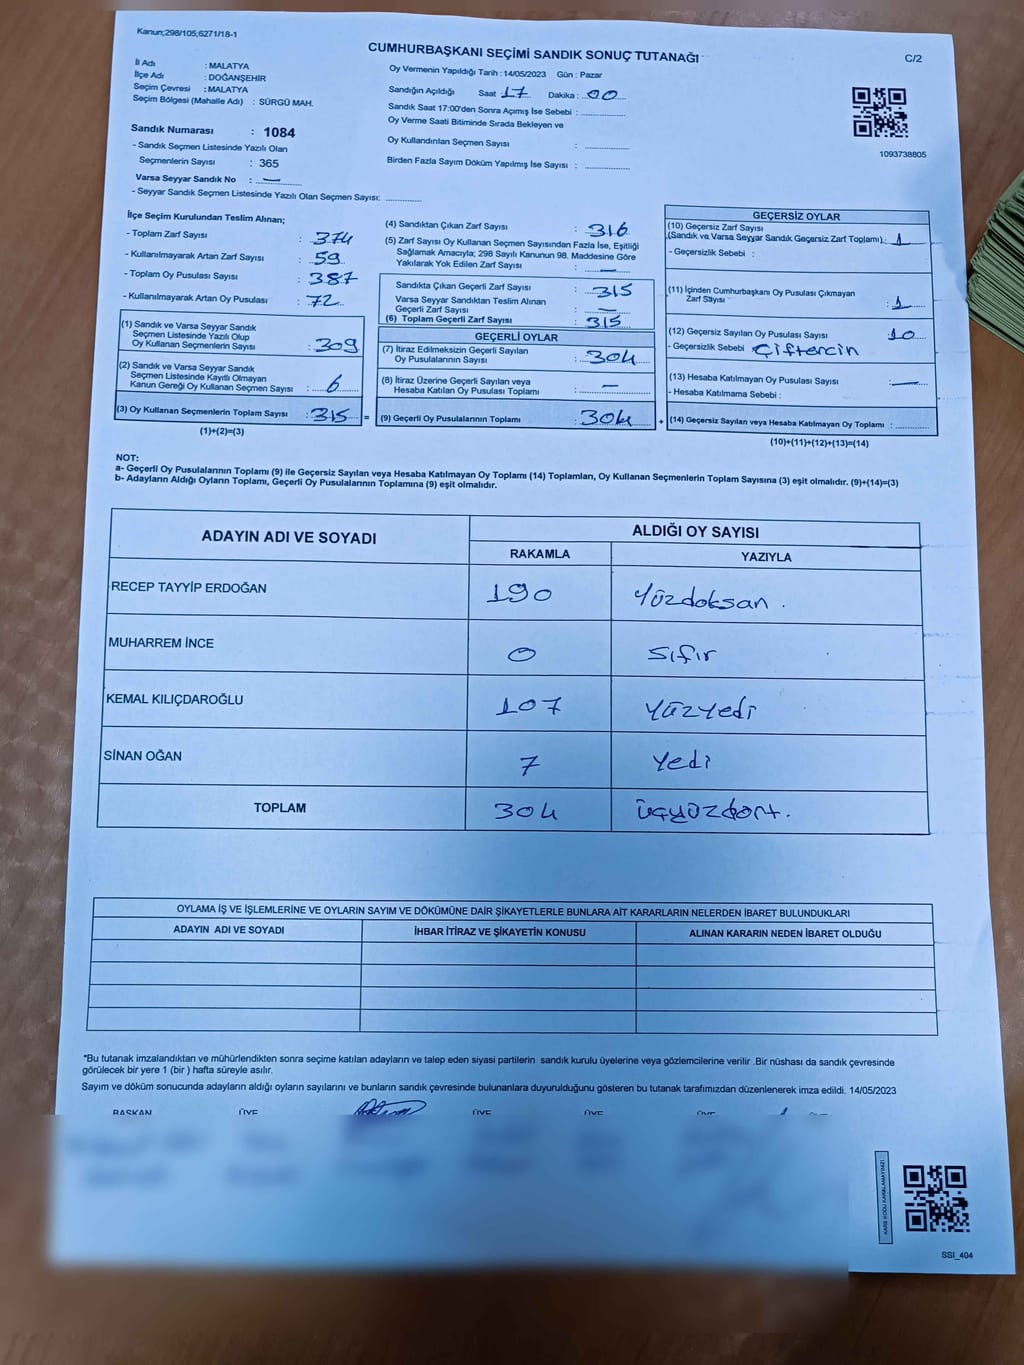 Kanun;298/105;6271/18-1
CUMHURBAŞKANI SEÇİMİ SANDIK SONUÇ TUTANAĞI
C/2
İl Adı : MALATYA
İlçe Adı : DOĞANŞEHİR
Seçim Çevresi : MALATYA
Seçim Bölgesi (Mahalle Adı) : SÜRGÜ MAH.
Sandık Numarası : 1084
- Sandık Seçmen Listesinde Yazılı Olan
Seçmenlerin Sayısı : 365
Varsa Seyyar Sandık No : —
- Seyyar Sandık Seçmen Listesinde Yazılı Olan Seçmen Sayısı:
Oy Vermenin Yapıldığı Tarih : 14/05/2023 Gün : Pazar
Sandığın Açıldığı Saat 17 Dakika : 00
Sandık Saat 17:00'den Sonra Açımış İse Sebebi :
Oy Verme Saati Bitiminde Sırada Bekleyen ve
Oy Kullandırılan Seçmen Sayısı :
Birden Fazla Sayım Döküm Yapılmış İse Sayısı :
1093738805
İlçe Seçim Kurulundan Teslim Alınan;
- Toplam Zarf Sayısı : 374
- Kullanılmayarak Artan Zarf Sayısı : 59
- Toplam Oy Pusulası Sayısı : 387
- Kullanılmayarak Artan Oy Pusulası : 72
(1) Sandık ve Varsa Seyyar Sandık
Seçmen Listesinde Yazılı Olup
Oy Kullanan Seçmenlerin Sayısı : 309
(2) Sandık ve Varsa Seyyar Sandık
Seçmen Listesinde Kayıtlı Olmayan
Kanun Gereği Oy Kullanan Seçmen Sayısı : 6
(3) Oy Kullanan Seçmenlerin Toplam Sayısı : 315 =
(1)+(2)=(3)
(4) Sandıktan Çıkan Zarf Sayısı : 316
(5) Zarf Sayısı Oy Kullanan Seçmen Sayısından Fazla İse, Eşitliği
Sağlamak Amacıyla; 298 Sayılı Kanunun 98. Maddesine Göre
Yakılarak Yok Edilen Zarf Sayısı : —
Sandıkta Çıkan Geçerli Zarf Sayısı : 315
Varsa Seyyar Sandıktan Teslim Alınan
Geçerli Zarf Sayısı : —
(6) Toplam Geçerli Zarf Sayısı : 315
GEÇERLİ OYLAR
(7) İtiraz Edilmeksizin Geçerli Sayılan
Oy Pusulalarının Sayısı : 304
(8) İtiraz Üzerine Geçerli Sayılan veya
Hesaba Katılan Oy Pusulası Toplamı : —
(9) Geçerli Oy Pusulalarının Toplamı : 304 +
GEÇERSİZ OYLAR
(10) Geçersiz Zarf Sayısı
(Sandık ve Varsa Seyyar Sandık Geçersiz Zarf Toplamı) : 1
- Geçersizlik Sebebi :
(11) İçinden Cumhurbaşkanı Oy Pusulası Çıkmayan
Zarf Sayısı : 1
(12) Geçersiz Sayılan Oy Pusulası Sayısı : 10
- Geçersizlik Sebebi : Çiftercin
(13) Hesaba Katılmayan Oy Pusulası Sayısı : —
- Hesaba Katılmama Sebebi :
(14) Geçersiz Sayılan veya Hesaba Katılmayan Oy Toplamı :
(10)+(11)+(12)+(13)=(14)
NOT:
a- Geçerli Oy Pusulalarının Toplamı (9) ile Geçersiz Sayılan veya Hesaba Katılmayan Oy Toplamı (14) Toplamları, Oy Kullanan Seçmenlerin Toplam Sayısına (3) eşit olmalıdır. (9)+(14)=(3)
b- Adayların Aldığı Oyların Toplamı, Geçerli Oy Pusulalarının Toplamına (9) eşit olmalıdır.
ADAYIN ADI VE SOYADI
ALDIĞI OY SAYISI
RAKAMLA YAZIYLA
RECEP TAYYİP ERDOĞAN 190 Yüzdoksan.
MUHARREM İNCE 0 Sıfır
KEMAL KILIÇDAROĞLU 107 Yüzyedi
SİNAN OĞAN 7 Yedi
TOPLAM 304 üçyüzdört.
OYLAMA İŞ VE İŞLEMLERİNE VE OYLARIN SAYIM VE DÖKÜMÜNE DAİR ŞİKAYETLERLE BUNLARA AİT KARARLARIN NELERDEN İBARET BULUNDUKLARI
ADAYIN ADI VE SOYADI İHBAR İTİRAZ VE ŞİKAYETİN KONUSU ALINAN KARARIN NEDEN İBARET OLDUĞU
*Bu tutanak imzalandıktan ve mühürlendikten sonra seçime katılan adayların ve talep eden siyasi partilerin sandık kurulu üyelerine veya gözlemcilerine verilir .Bir nüshası da sandık çevresinde
görülecek bir yere 1 (bir ) hafta süreyle asılır.
Sayım ve döküm sonucunda adayların aldığı oyların sayılarını ve bunların sandık çevresinde bulunanlara duyurulduğunu gösteren bu tutanak tarafımızdan düzenlenerek imza edildi. 14/05/2023
BAŞKAN ÜYE ÜYE ÜYE ÜYE
SSI_404